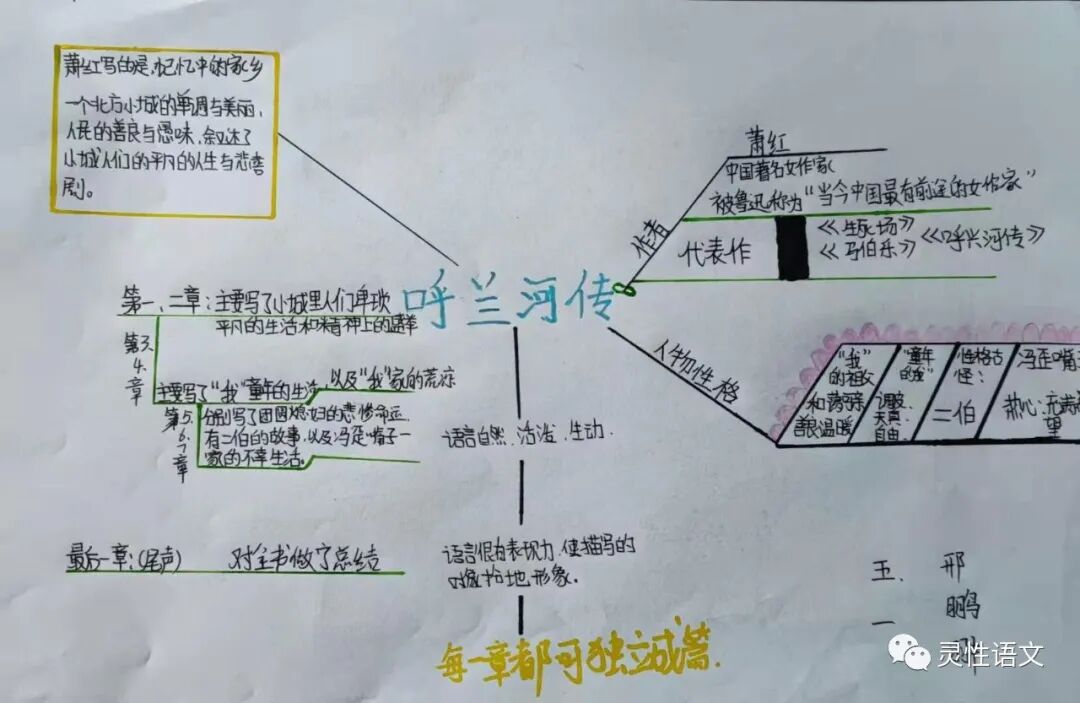 萧红写的是,记忆中的家乡
一个北方小城的单调与美丽,
人民的善良与愚昧,叙述了
小城人们的平凡的人生与悲喜
剧。
呼兰河传
作者
萧红
中国著名女作家
被鲁迅称为“当今中国最有前途的女作家”
代表作
《生死场》
《马伯乐》《呼兰河传》
人物性格
“我”
的祖父
和蔼
善良温暖
“童年
的我”
调皮
天真
自由
性格古
怪:
二伯
冯歪嘴
热心:充满
望
第一、二章:主要写了小城里人们卑琐
平凡的生活和精神上的
第3.
4.
章
主要写了“我”童年的生活 以及“我”家的荒凉
第5.
6.7
章
分别写了团圆媳妇的悲惨命运,
有二伯的故事,以及冯歪嘴子一
家的不幸生活。
最后一章:(尾声) 对全书做了总结
语言自然、活泼、生动.
语言很有表现力,使描写的
对象 地形象。
每一章都可独立成篇.
五.
一
邢
鹏
灵性语文